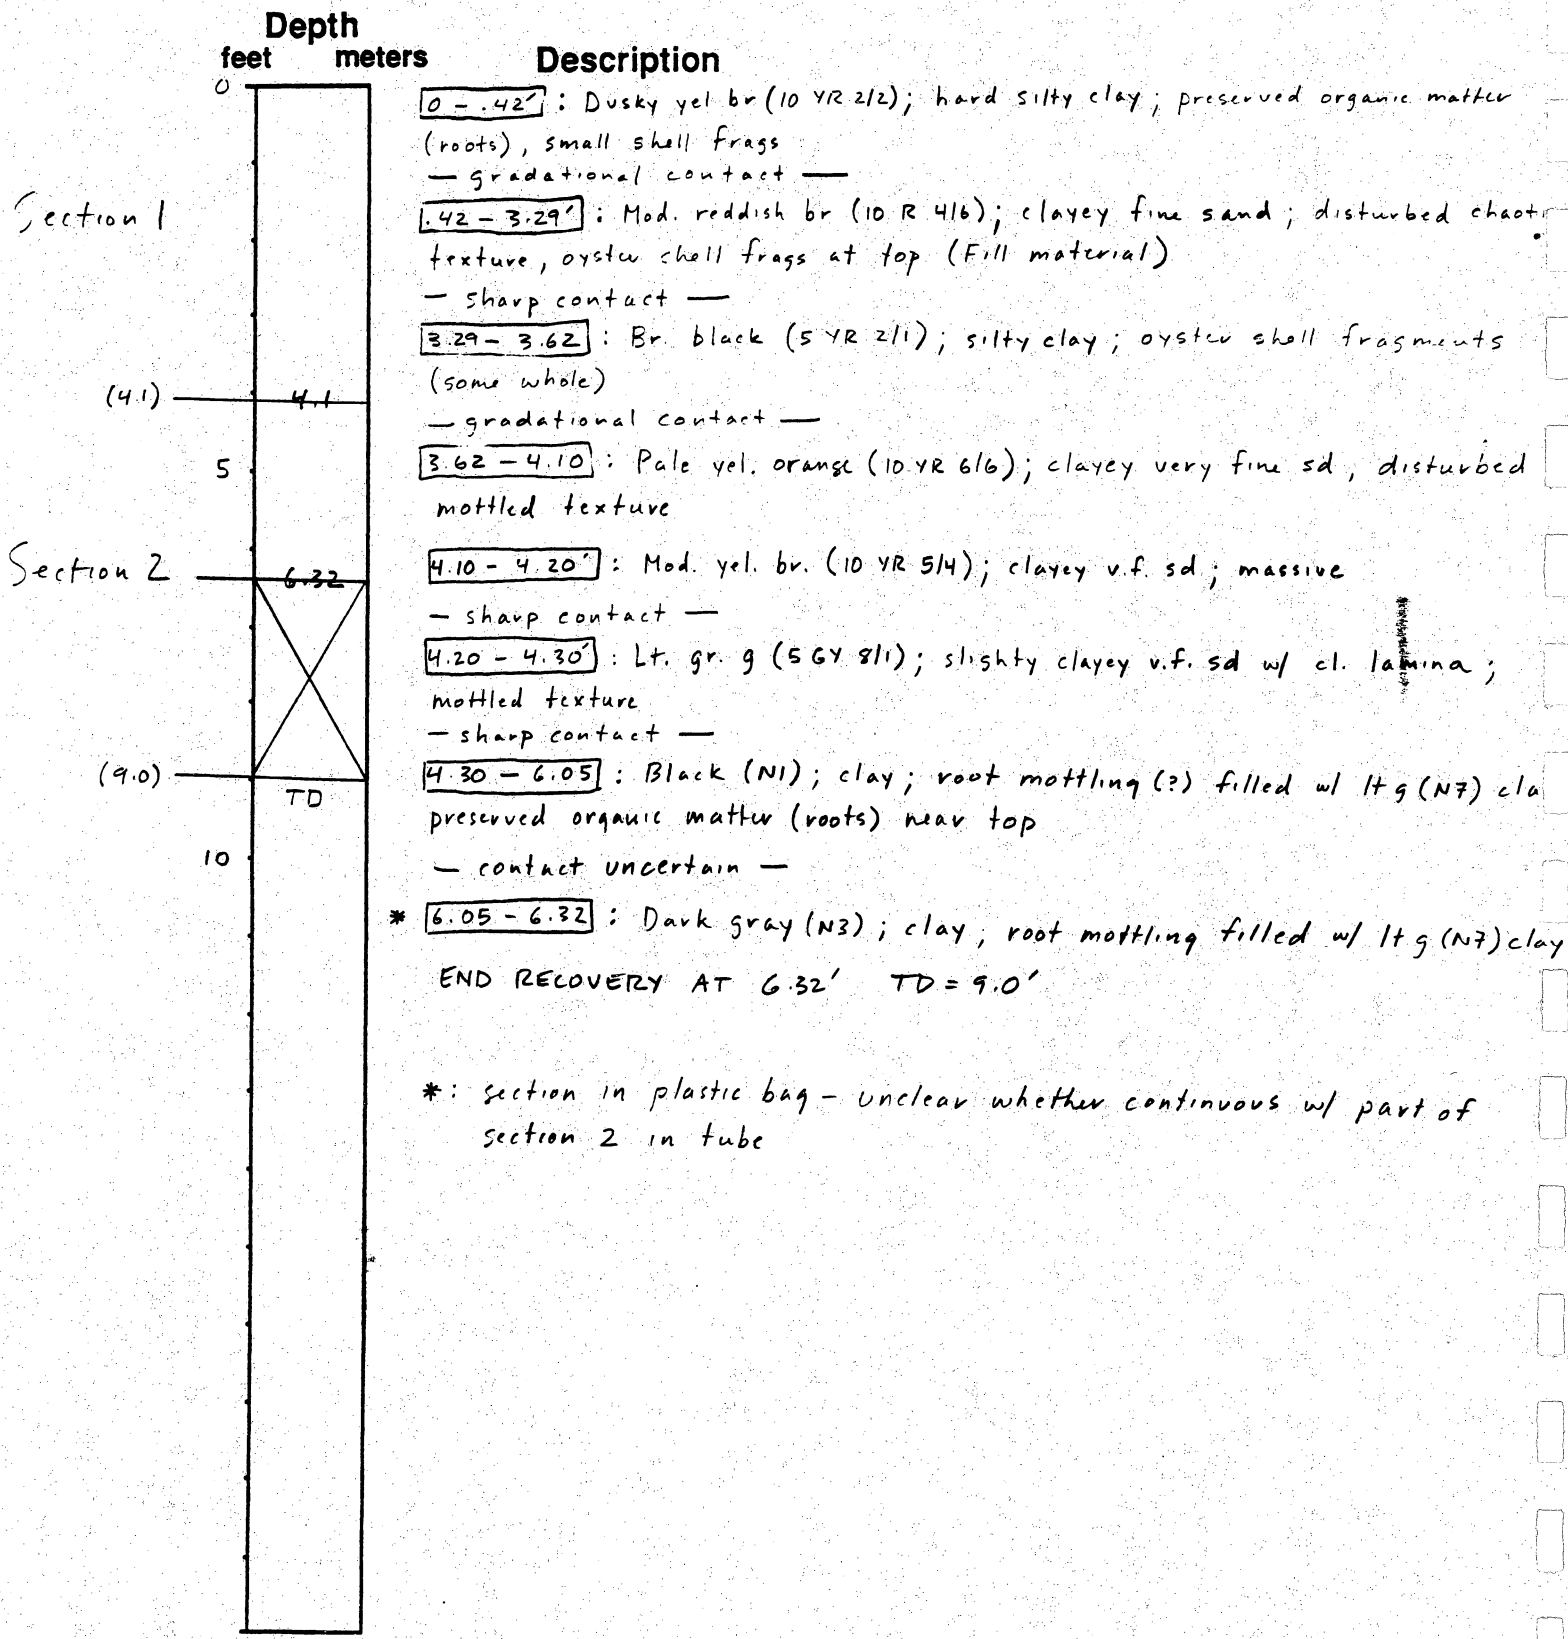 Depth
feet meters Description
0
0 - .42' : Dusky yel br (10 YR 2/2); hard silty clay; preserved organic matter
(roots), small shell frags
— gradational contact —
Section 1
.42 - 3.29' : Mod. reddish br (10 R 4/6); clayey fine sand; disturbed chaoti
texture, oyster shell frags at top (Fill material)
— sharp contact —
3.29 - 3.62 : Br. black (5 YR 2/1); silty clay; oyster shell fragments
(some whole)
(4.1) 4.1
— gradational contact —
5
3.62 - 4.10 : Pale yel. orange (10 YR 6/6); clayey very fine sd, disturbed
mottled texture
Section 2 6.32
4.10 - 4.20' : Mod. yel. br. (10 YR 5/4); clayey v.f. sd; massive
— sharp contact —
4.20 - 4.30' : Lt. gr. g (5 GY 8/1); slighty clayey v.f. sd w/ cl. lamina;
mottled texture
— sharp contact —
(9.0) TD
4.30 - 6.05 : Black (N1); clay; root mottling (?) filled w/ lt g (N7) cla
preserved organic matter (roots) near top
10
— contact uncertain —
* 6.05 - 6.32 : Dark gray (N3); clay, root mottling filled w/ lt g (N7) clay
END RECOVERY AT 6.32' TD = 9.0'
*: section in plastic bag - unclear whether continuous w/ part of
section 2 in tube